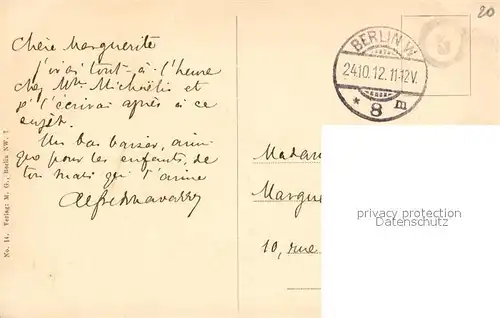 Chère Marguerite
j'irai tout-à l'heure
chez Mme Michaëlis et
t'écrirai après à ce
sujet.
Un bas baiser, ainsi
que pour les enfants, de
ton mari qui t'aime
Alfred
No. 14. Verlag: M. G., Berlin NW. 7.
BERLIN W.
24.10.12.11-12V.
* 8 m
20
Madam
Margue
10, rue
privacy protection
Proprietary Material